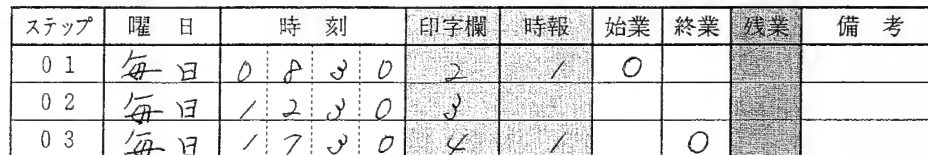 ステップ 曜日 時刻 印字欄 時報 始業 終業 残業 備考
01 毎日 0830 2 1 ○
02 毎日 1230 3
03 毎日 1730 4 1 ○